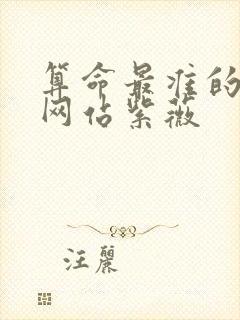 算命最准的
网占紫薇
汪麗